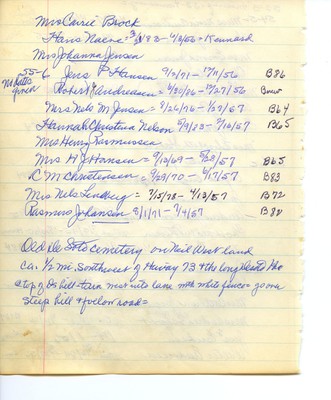 Mrs Carrie Brock
Hans Naeve = 3/1/82 - 4/8/56 = Kennard
Mrs Johanna Jensen
55-6 Jens P Hansen 9/2/71 - 17/11/56 B86
No batts given Robert Andreasen = 4/30/86 - 12/27/56
Mrs Nels M. Jensen = 8/26/76 - 1/27/67 B64
Hannah Christina Nelson 5/9/83 - 2/10/57 B65
Mrs Henry Rasmussen
Mrs H J Hansen = 9/12/69 - 5/28/57 B65
C M Christensen = 9/29/70 - 6/17/57 B83
Mrs Nels Lindberg = 7/5/78 - 4/13/57 B72
Rasmus Johansen = 8/1/71 - 7/4/57 B82
Old De Soto cemetery on Neil West land
ca. 1/2 mi. Southwest of Hiway 73 & the long
stop of De hill - turn next into lane with white fence = go over
steep hill & follow road =